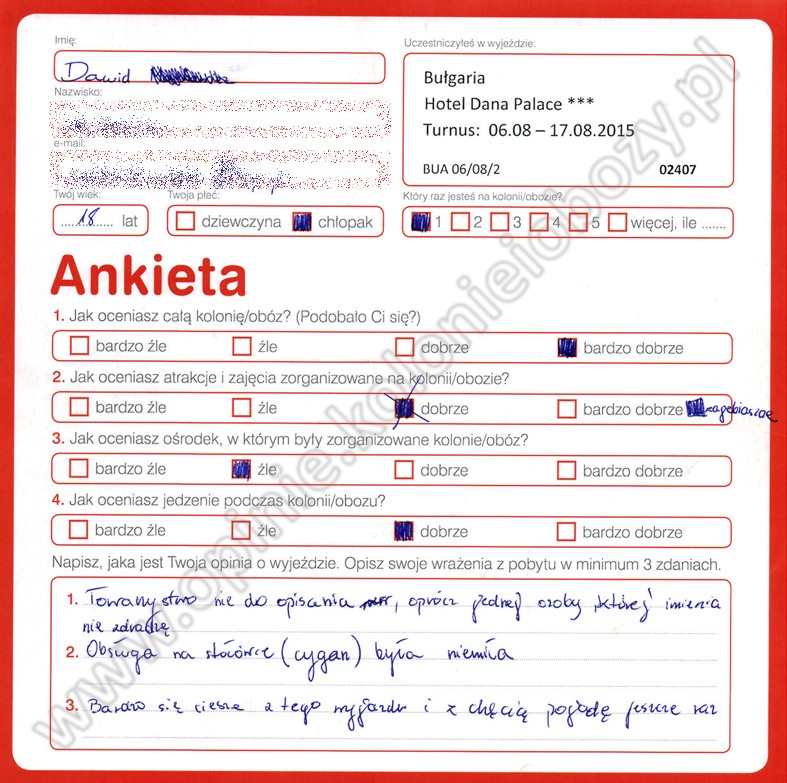 Imię:
Dawid
Nazwisko:
e-mail:
Twój wiek:
18 lat
Twoja płeć:
dziewczyna chłopak
Uczestniczyłeś w wyjeździe:
Bułgaria
Hotel Dana Palace ***
Turnus: 06.08 – 17.08.2015
BUA 06/08/2 02407
Który raz jesteś na kolonii/obozie?
1 2 3 4 5 więcej, ile .......
Ankieta
1. Jak oceniasz całą kolonię/obóz? (Podobało Ci się?)
bardzo źle źle dobrze bardzo dobrze
2. Jak oceniasz atrakcje i zajęcia zorganizowane na kolonii/obozie?
bardzo źle źle dobrze bardzo dobrze zagebiascze
3. Jak oceniasz ośrodek, w którym były zorganizowane kolonie/obóz?
bardzo źle źle dobrze bardzo dobrze
4. Jak oceniasz jedzenie podczas kolonii/obozu?
bardzo źle źle dobrze bardzo dobrze
Napisz, jaka jest Twoja opinia o wyjeździe. Opisz swoje wrażenia z pobytu w minimum 3 zdaniach.
1. Towarzystwo nie do opisania, oprócz jednej osoby, której imienia
nie zdradzę
2. Obsługa na stołówce (cygan) była niemiła
3. Bardzo się cieszę z tego wyjazdu i z chęcią pojadę jeszcze raz
www.opinie.kolonieiobozy.pl